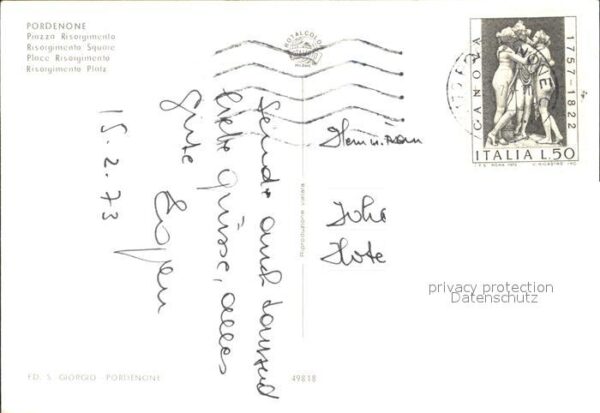 PORDENONE
Piazza Risorgimento
Risorgimento Square
Place Risorgimento
Risorgimento Platz
15.2.73
Sende auch tausend
liebe Grüsse, alles
Gute
ROTALCOLOR
MILANO
Riproduzione vietata
CANOVA
1757-1822
ITALIA L.50
I.P.S. ROMA 1972
privacy protection
Datenschutz
ED. S. GIORGIO - PORDENONE
49818